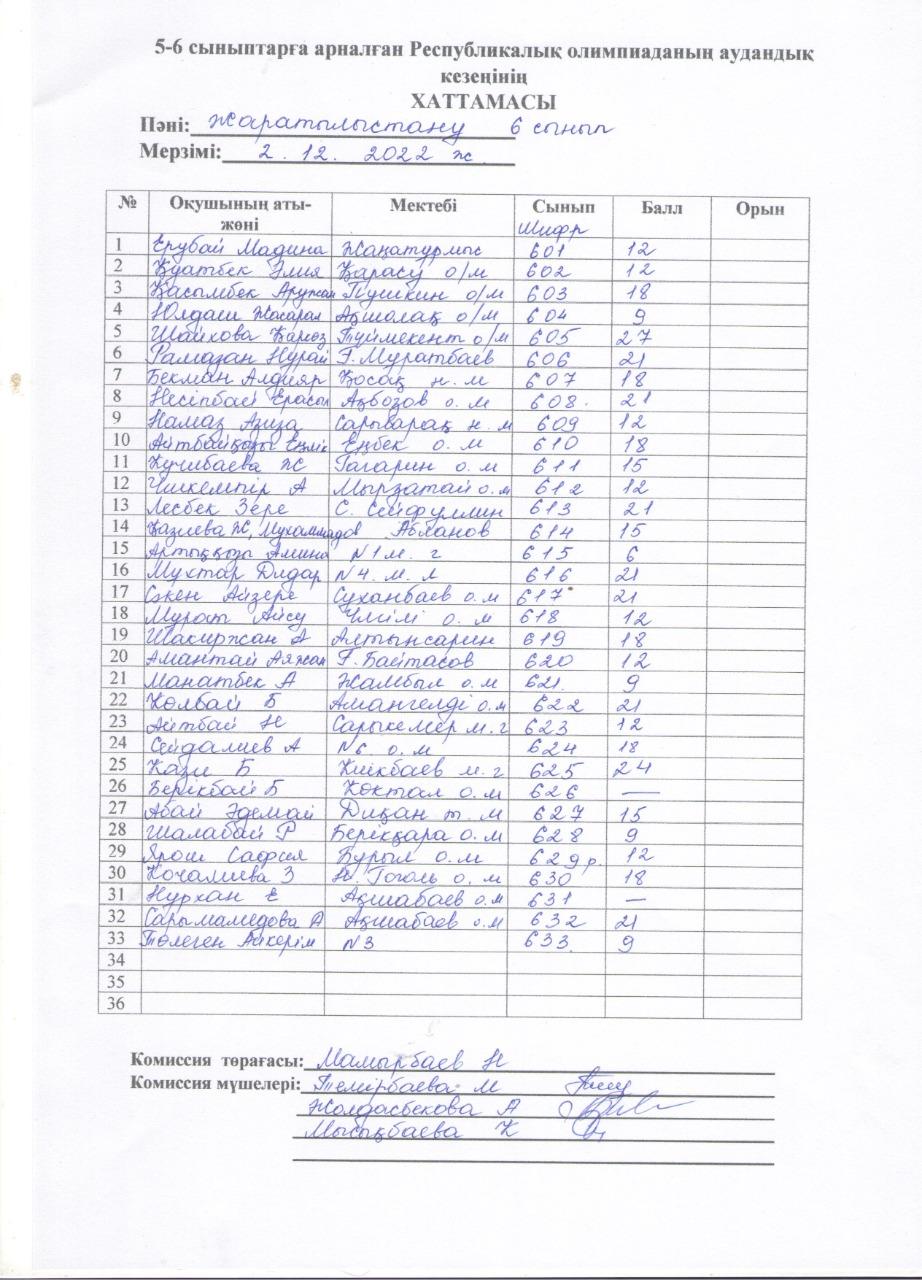 5-6 сыныптарға арналған Республикалық олимпиаданың аудандық
кезеңінің
ХАТТАМАСЫ
Пәні: Жаратылыстану 6 сынып
Мерзімі: 2.12. 2022 ж
№ Оқушының аты-жөні Мектебі Сынып Шифр Балл Орын
1 Ерубай Мадина Жаңатурмыс 601 12
2 Қуатбек Әлия Қарасу о/м 602 12
3 Қасымбек Аружан Пушкин о/м 603 18
4 Юлдаш Жасарал Ақшолақ о/м 604 9
5 Шайхова Түймекент о/м 605 27
6 Рамазан Нурай Ғ. Муратбаев 606 21
7 Бекман Алдияр Қосақ н.м 607 18
8 Несіпбай Ерасыл Ақбозов о.м 608 21
9 Намаз Азиза Сарыбарақ н.м 609 12
10 Айтбайқызы Еңлік Еңбек о.м 610 18
11 Кучибаева Ж Гагарин о.м 611 15
12 Чшкемпір А Мырзатай о.м 612 12
13 Лесбек Зере С. Сейфуллин 613 21
14 Казиева Ж, Мухаммадов Абланов 614 15
15 Артыққызы Амина N1 м. г 615 6
16 Мухтар Дидар N4. м. л 616 21
17 Сәкен Айзере Суханбаев о.м 617 21
18 Мурат Айсу о. м 618 12
19 Шакиржан А Алтынсарин 619 18
20 Амантай Аяжан Ғ. Байтасов 620 12
21 Манатбек А Жамбыл о.м 621. 9
22 Көлбай Б Амангелді о.м 622 21
23 Айтбай Н Сарыкемер м.г 623 12
24 Сейдалиев А N6 о.м 624 18
25 Кази Б Киікбаев м.г 625 24
26 Берікбай Б Көктал о.м 626 —
27 Абай Әдемай Диқан т. м 627 15
28 Шалабай Р Берікқара о.м 628 9
29 Ярош Сафия Бурыл о.м 629 р. 12
30 Кочалиева З Н Гоголь о. м 630 18
31 Нурхан Е Ақшабаев о.м 631 —
32 Сарымамедова А Ақшабаев о.м 632 21
33 Төлеген Айкерім N3 633. 9
34
35
36
Комиссия төрағасы: Мамырбаев Н
Комиссия мүшелері: Темірбаева М
Жолдасбекова А
Мысықбаева К